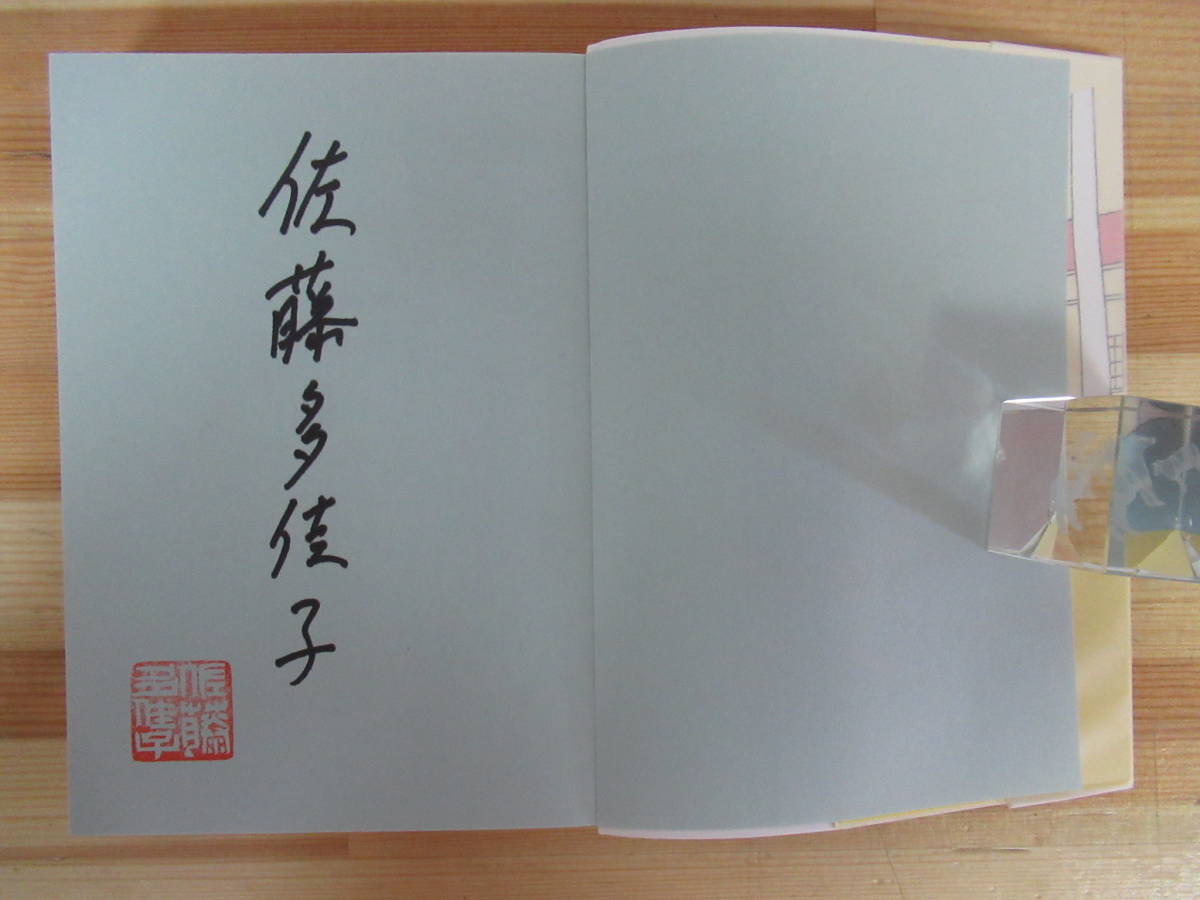 佐藤多佳子
佐藤
多佳子